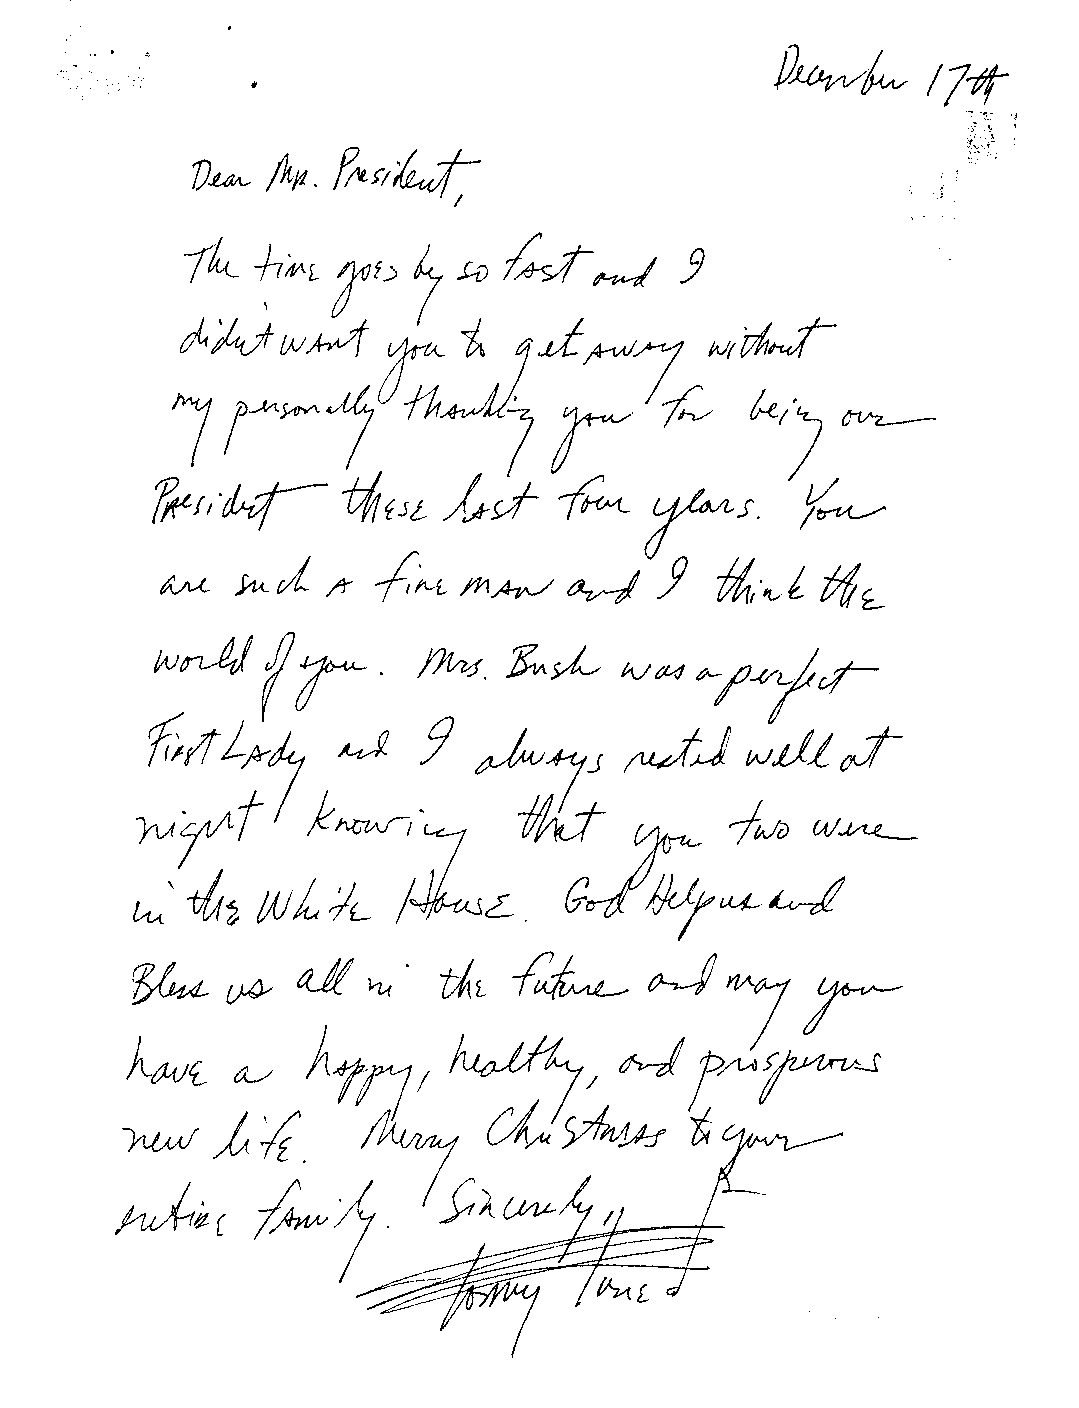 December 17th
Dear Mr. President,
The time goes by so fast and I
didn't want you to get away without
my personally thanking you for being our
President these last four years. You
are such a fine man and I think the
world of you. Mrs. Bush was a perfect
First Lady and I always rested well at
night knowing that you two were
in the White House. God Help us and
Bless us all in the future and may you
have a happy, healthy, and prosperous
new life. Merry Christmas to your
entire family. Sincerely,
Tommy Tune